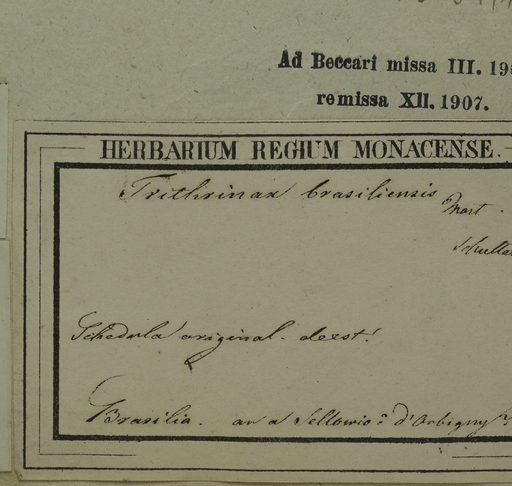 Ad Beccari missa III. 19
remissa XII. 1907.
HERBARIUM REGIUM MONACENSE.
Trithrinax brasiliensis Mart.
Schedula original. deest!
Brasilia. an a Sellowio? d'Orbigny?